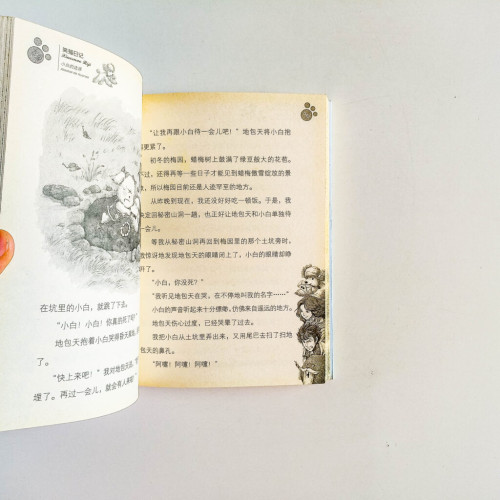 笑猫日记
在坑里的小白，就跳了下去。
“小白！小白！你真的死了吗？”
地包天抱着小白哭得昏天黑地
了。
“快上来吧！”我对地包天说，
埋了。再过一会儿，就会有人来
“让我再跟小白待一会儿吧！”地包天将小白抱
得更紧了。
初冬的梅园，蟠梅树上鼓满了绿豆般大的花苞。
不过，还得再等一些日子才能见到蟠梅傲雪绽放的景
致，所以梅园目前还是人迹罕至的地方。
从昨晚到现在，我还没好好吃一顿饭。于是，我
决定回秘密山洞一趟，也正好让地包天和小白单独待
一会儿。
等我从秘密山洞再回到梅园里的那个土坑旁时，
我惊讶地发现地包天的眼睛闭上了，小白的眼睛却睁
开了。
“小白，你没死？”
“我听见地包天在哭，在不停地叫我的名字……”
小白的声音听起来十分缥缈，仿佛来自遥远的地方。
地包天伤心过度，已经哭晕了过去。
我把小白从土坑里弄出来，又用尾巴去扫了扫地
包天的鼻孔。
“阿嚏！阿嚏！阿嚏！”